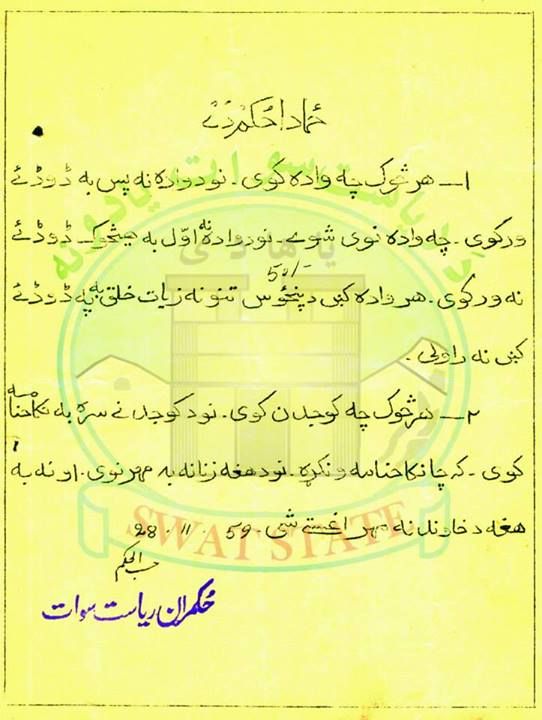 ځما دا حُکم دے
۱ــ هر څوک چه واده کوی ـ نو د واده نه پس به ډوډئے
ورکوی ـ چه واده نوی شوے ـ نو د واده نه اوّل به هیڅوک ډوډئے
50/-
نه ورکوی ـ هر واده کښ د پنځوس تنو نه زیات خلق به په ډوډئے
کښ نه راولی ـ
۲ــ هر څوک چه کوجدن کوی ـ نو د کوجدنے سره به نکاحنامه
کوی ـ که چا نکاحنامه ونکړه ـ نو د هغه زنانه به مهر نوی ـ او نه به
هغه د خاوند نه مهر اغستے شی ـ 59 11 28
حسب الحکم
حُکمران ریاست سوات
SWAT STATE